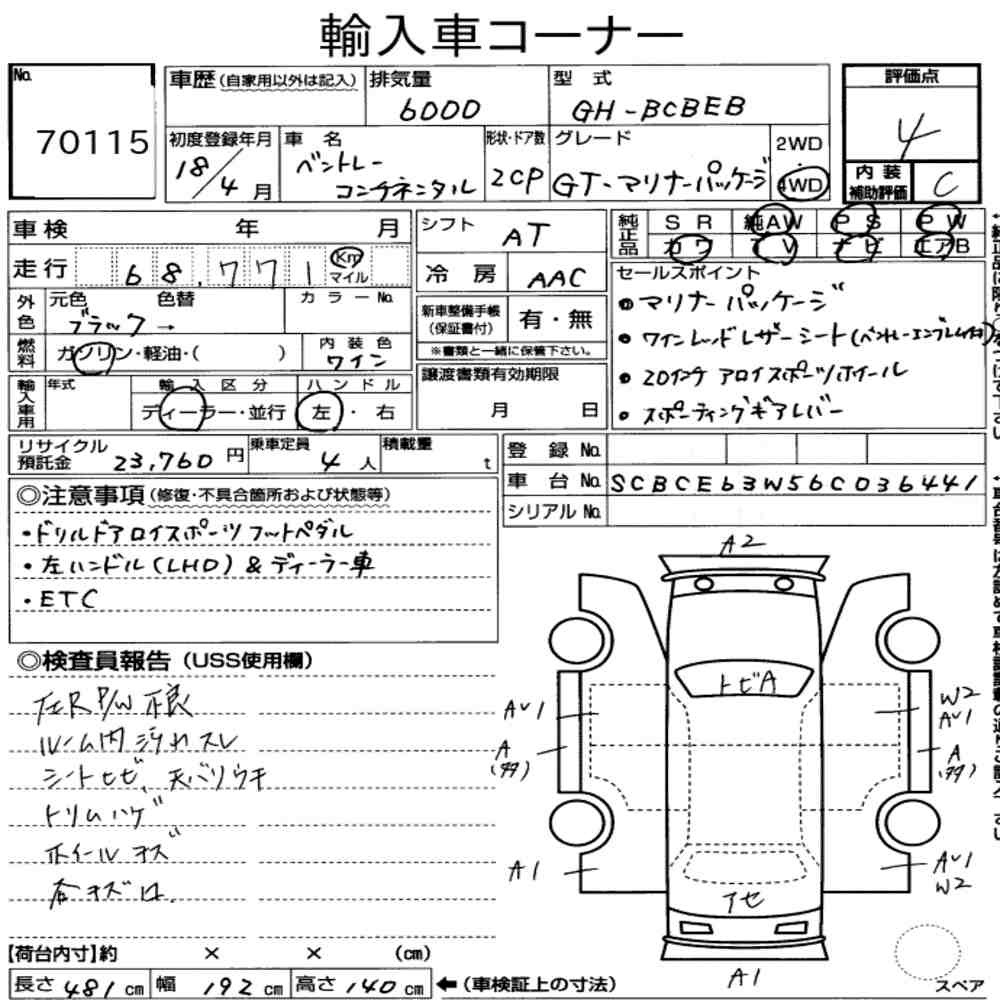 輸入車コーナー
No.
70115
車歴 (自家用以外は記入)
排気量
6000
型式
GH-BCBEB
評価点
4
内装
補助評価
C
初度登録年月
18/4月
車名
ベントレー
コンチネンタル
形状・ドア数
2CP
グレード
GT-マリナーパッケージ
2WD
4WD
車検 年 月
走行 68,771 Km
マイル
外色
元色 色替 カラーNo.
ブラック→
燃料
ガソリン・軽油・( )
内装色
ワイン
輸入車用
年式
輸入区分
ディーラー・並行
ハンドル
左・右
シフト AT
冷房 AAC
新車整備手帳
(保証書付)
有・無
※書類と一緒に保管下さい。
譲渡書類有効期限
月 日
純正品
SR 純AW PS PW
カワ TV ナビ エアB
セールスポイント
• マリナーパッケージ
• ワインレッドレザーシート(ベントレーエンブレム付)
• 20インチ アロイスポーツホイール
• スポーティングギアレバー
リサイクル
預託金 23,760円
乗車定員
4人
積載量
t
登録No.
車台No. SCBCE63W56C036441
シリアルNo.
◎注意事項 (修復・不具合箇所および状態等)
・ドリルドアロイスポーツフットペダル
・左ハンドル(LHD)&ディーラー車
・ETC
◎検査員報告 (USS使用欄)
左R P/W不良
ルーム内ヨゴレスレ
シートヒビ、天バリウキ
トリムハゲ
ホイールキズ
A2
トビA
AU1
A
W2
AU1
A
A1
AU1
W2
アセ
A1
スペア
【荷台内寸】約 × × (cm)
長さ 481 cm 幅 192 cm 高さ 140 cm ←(車検証上の寸法)